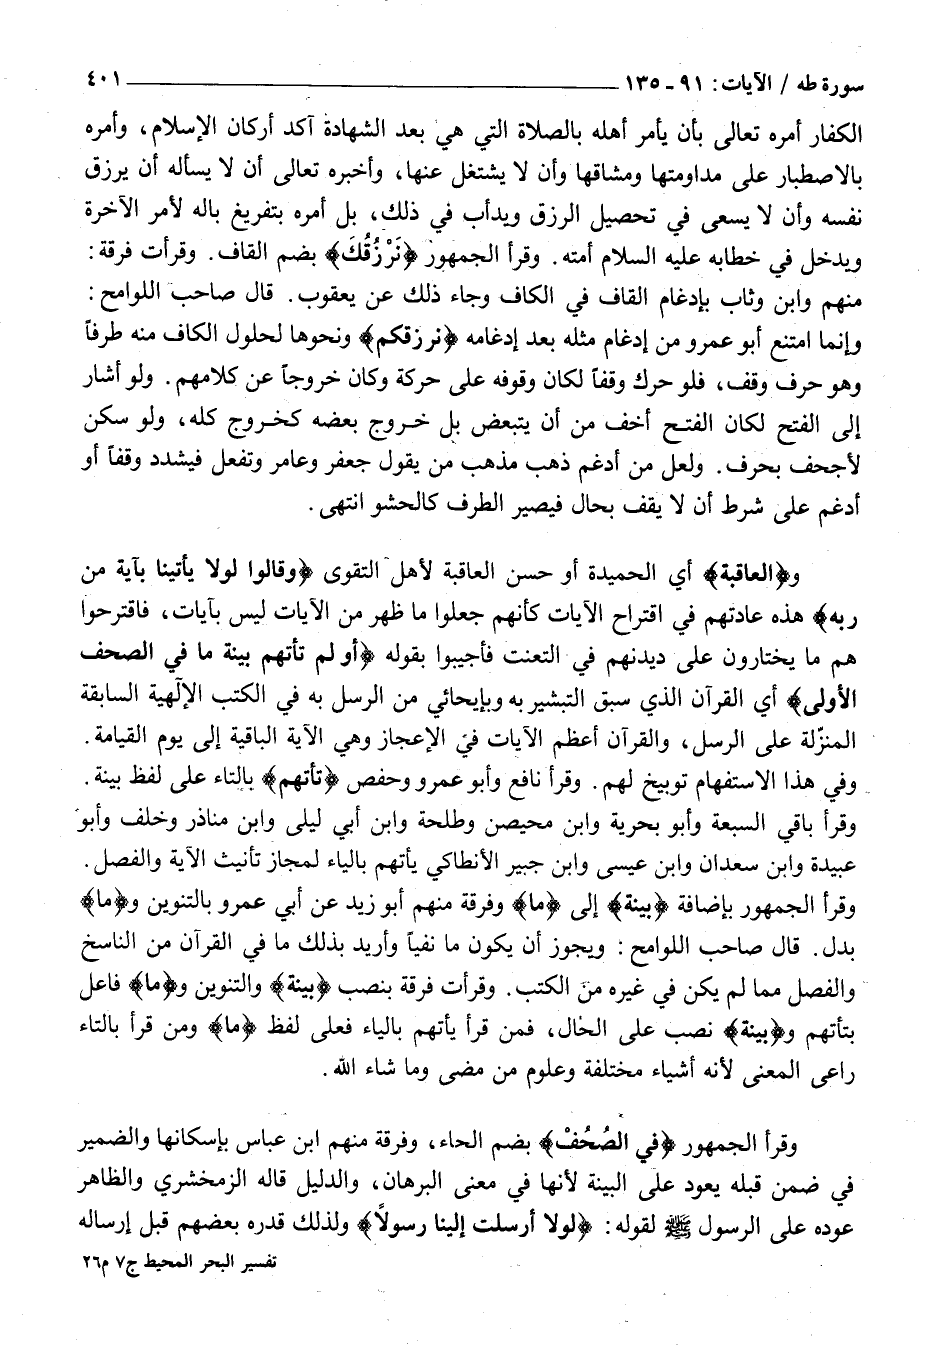 سورة طه / الآيات : ٩١ - ١٣٥ ــــــ ٤٠١
الكفار أمره تعالى بأن يأمر أهله بالصلاة التي هي بعد الشهادة آكد أركان الإسلام، وأمره
بالاصطبار على مداومتها ومشاقها وأن لا يشتغل عنها، وأخبره تعالى أن لا يسأله أن يرزق
نفسه وأن لا يسعى في تحصيل الرزق ويدأب في ذلك، بل أمره بتفريغ باله لأمر الآخرة
ويدخل في خطابه عليه السلام أمته. وقرأ الجمهور ﴿نَرْزُقُكَ﴾ بضم القاف. وقرأت فرقة :
منهم وابن وثاب بإدغام القاف في الكاف وجاء ذلك عن يعقوب. قال صاحب اللوامح :
وإنما امتنع أبو عمرو من إدغام مثله بعد إدغامه ﴿نرزقكم﴾ ونحوها لحلول الكاف منه طرفاً
وهو حرف وقف، فلو حرك وقفاً لكان وقوفه على حركة وكان خروجاً عن كلامهم. ولو أشار
إلى الفتح لكان الفتح أخف من أن يتبعض بل خروج بعضه كخروج كله، ولو سكن
لأجحف بحرف. ولعل من أدغم ذهب مذهب من يقول جعفر وعامر وتفعل فيشدد وقفاً أو
أدغم على شرط أن لا يقف بحال فيصير الطرف كالحشو انتهى.
و﴿العاقبة﴾ أي الحميدة أو حسن العاقبة لأهل التقوى ﴿وقالوا لولا يأتينا بآية من
ربه﴾ هذه عادتهم في اقتراح الآيات كأنهم جعلوا ما ظهر من الآيات ليس بآيات، فاقترحوا
هم ما يختارون على ديدنهم في التعنت فأجيبوا بقوله ﴿أو لم تأتهم بينة ما في الصحف
الأولى﴾ أي القرآن الذي سبق التبشير به وبإيحائي من الرسل به في الكتب الإلٓهية السابقة
المنزّلة على الرسل، والقرآن أعظم الآيات في الإعجاز وهي الآية الباقية إلى يوم القيامة.
وفي هذا الاستفهام توبيخ لهم. وقرأ نافع وأبو عمرو وحفص ﴿تأتهم﴾ بالتاء على لفظ بينة.
وقرأ باقي السبعة وأبو بحرية وابن محيصن وطلحة وابن أبي ليلى وابن مناذر وخلف وأبو
عبيدة وابن سعدان وابن عيسى وابن جبير الأنطاكي يأتهم بالياء لمجاز تأنيث الآية والفصل.
وقرأ الجمهور بإضافة ﴿بينة﴾ إلى ﴿ما﴾ وفرقة منهم أبو زيد عن أبي عمرو بالتنوين و﴿ما﴾
بدل. قال صاحب اللوامح : ويجوز أن يكون ما نفياً وأريد بذلك ما في القرآن من الناسخ
والفصل مما لم يكن في غيره من الكتب. وقرأت فرقة بنصب ﴿بينة﴾ والتنوين و﴿ما﴾ فاعل
بتأتهم و﴿بينة﴾ نصب على الحال، فمن قرأ يأتهم بالياء فعلى لفظ ﴿ما﴾ ومن قرأ بالتاء
راعى المعنى لأنه أشياء مختلفة وعلوم من مضى وما شاء الله.
وقرأ الجمهور ﴿في الصُحُفْ﴾ بضم الحاء، وفرقة منهم ابن عباس بإسكانها والضمير
في ضمن قبله يعود على البينة لأنها في معنى البرهان، والدليل قاله الزمخشري والظاهر
عوده على الرسول ﷺ لقوله : ﴿لولا أرسلت إلينا رسولاً﴾ ولذلك قدره بعضهم قبل إرساله
تفسير البحر المحيط ج٧ م٢٦